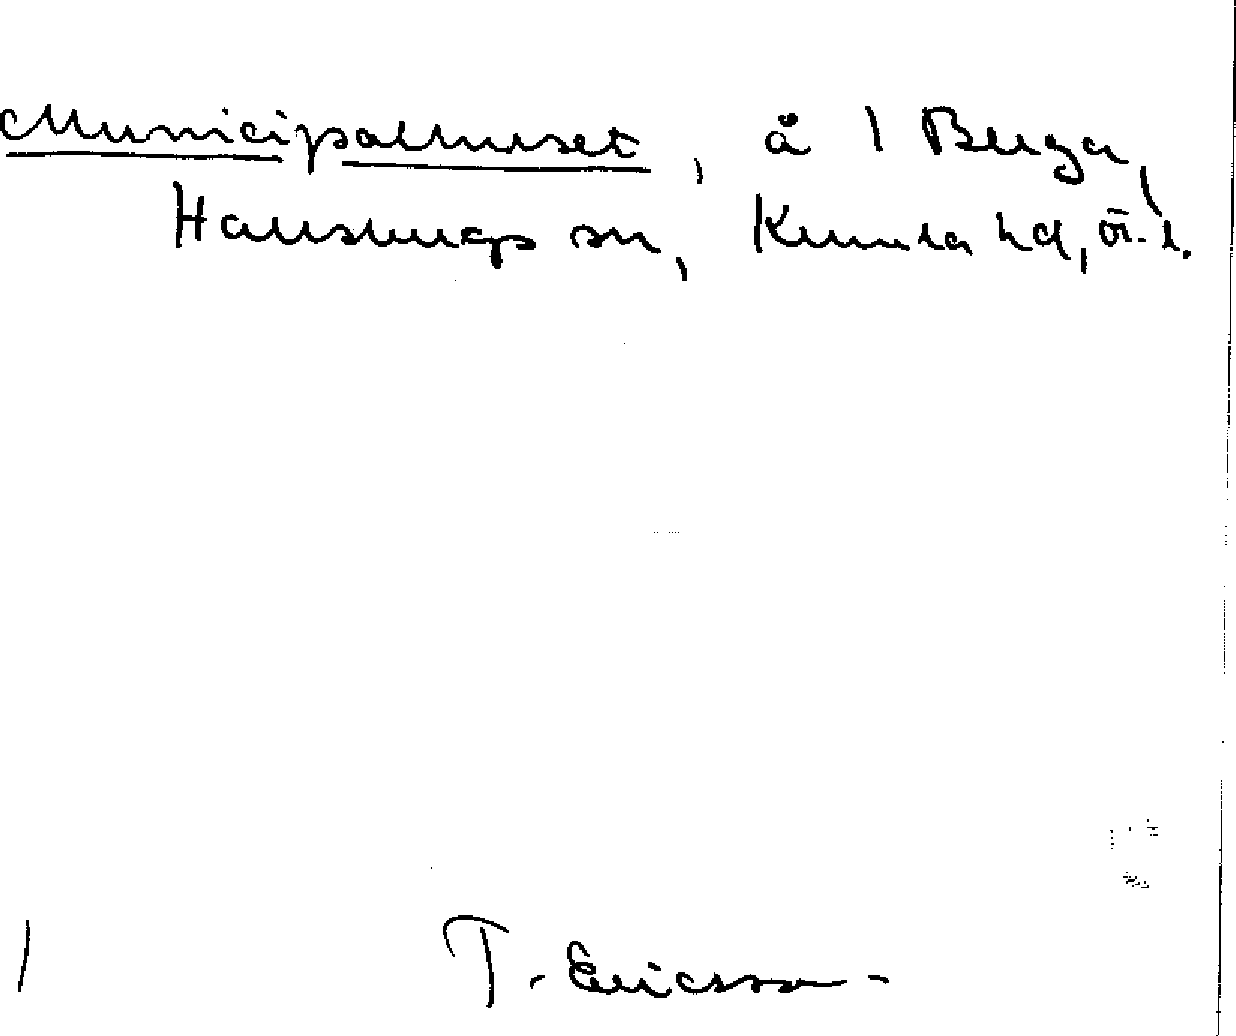 Municipalhuset, å 1 Berga,
Hallsbergs sn, Kumla hd, ör. l.
1 T. Ericsson